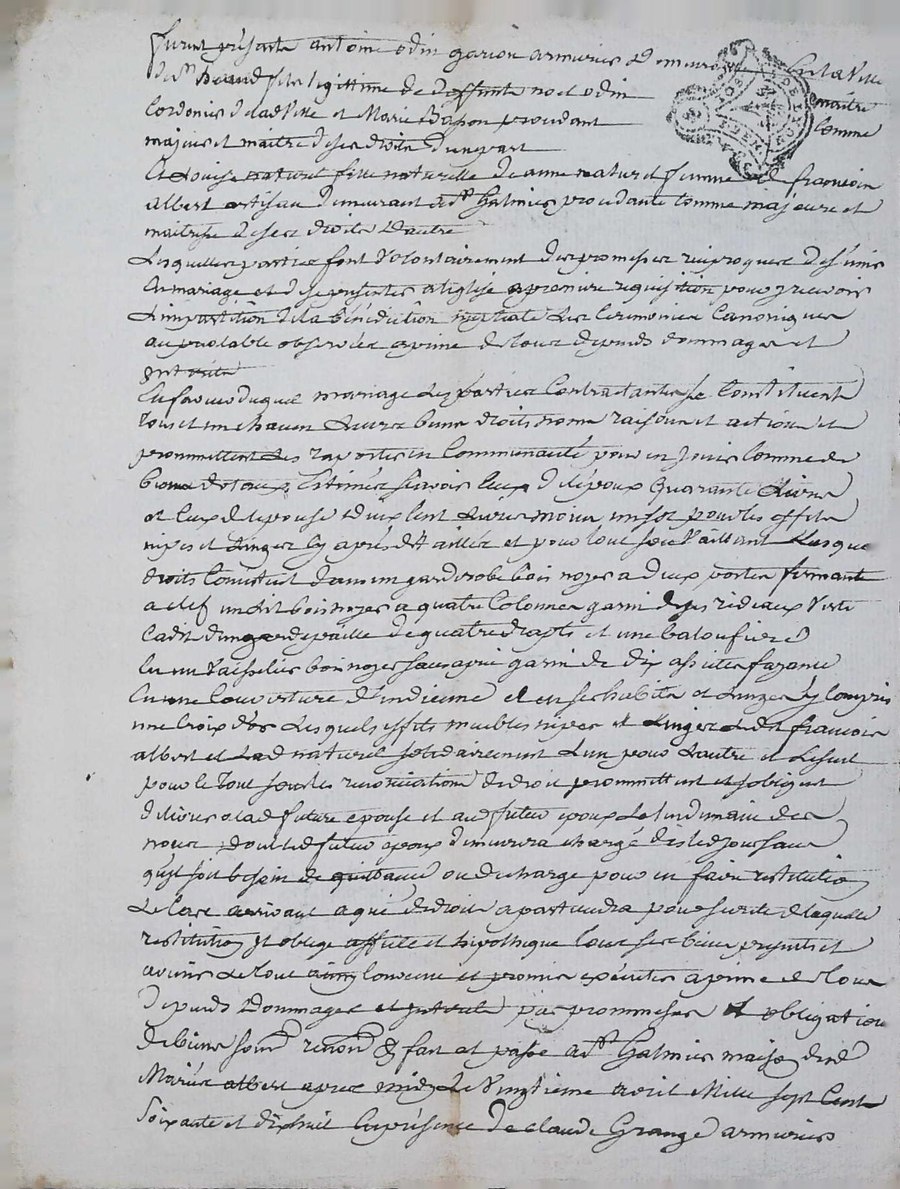 furent présents antoine odin garson armurier demeurant en la Ville
de st fils legittime de deffunts noel odin maitre
Cordonier de lad Ville et Marie procedant comme
majeur et maitre de ses droits d'une part
Et Louise naturel fille naturelle de anne naturel femme de francois
albert artisan demeurant a st Galmier procedante comme majeure et
maitresse de ses droits D'autre
Lesquelles parties font Volontairement des promesses réciproques de s'unir
En mariage et de se presenter a l'eglise a premiere requisition pour y recevoir
L'impartition de la bénédiction nuptiale Les Ceremonies Canoniques
au prealable observées a peine de tous depends dommages et
interets
En faveur duquel mariage Les parties Contractantes se Constituent
Tous et un chacun Leurs biens droits noms raisons et actions et
promettent Les raporter en Communauté pour en jouir Comme de
biens dotaux Estimés sçavoir Ceux de l'époux Quarante Livres
et Ceux de l'epouse deux Cent Livres moins un sol pour les effets
nipes et Linges cy après détaillés et pour tout son Vaillant Lesquels
droits Consistent dans un garderobe bois noyer a deux portes fermante
a clef un lit bois noyer a quatre Colonnes garni de ses rideaux Verts
Cadis d'un garde paille de quatre draps et une baloufiere
En un Vaisselier bois noyer sans apui garni de dix assietes fayance
En une Couverture d'indienne et en ses habits et Linges y Compris
une Croix d'or Lesquels effets meubles nipes et Linges Ledit francois
albert et Lad naturel solidairement L'un pour L'autre et L'esuit
pour le Tout sous les renonciations de droit promettent et s'obligent
délivrer a lad future epouse et aud futur epoux Le lendemain des
noces, dont led futur époux demeurera chargé dès led jour sans
qu'il soit besoin de quittance ou decharge pour en faire restitution
Le Cas arrivant a qui de droit apartiendra pour sureté de laquelle
restitution il oblige affecte et hipotheque tous ses biens presents et
avenir Le tout ainsy Convenu et promis exécuter a peine de tous
depends Dommages et interets par promesses et obligation
De biens soum renon &c fait et passé a st Galmier maison dud
Mariés albert apres midy Le Vingtieme avril Mille sept Cent
Soixante et dixhuit En présence de claude Grange armurier